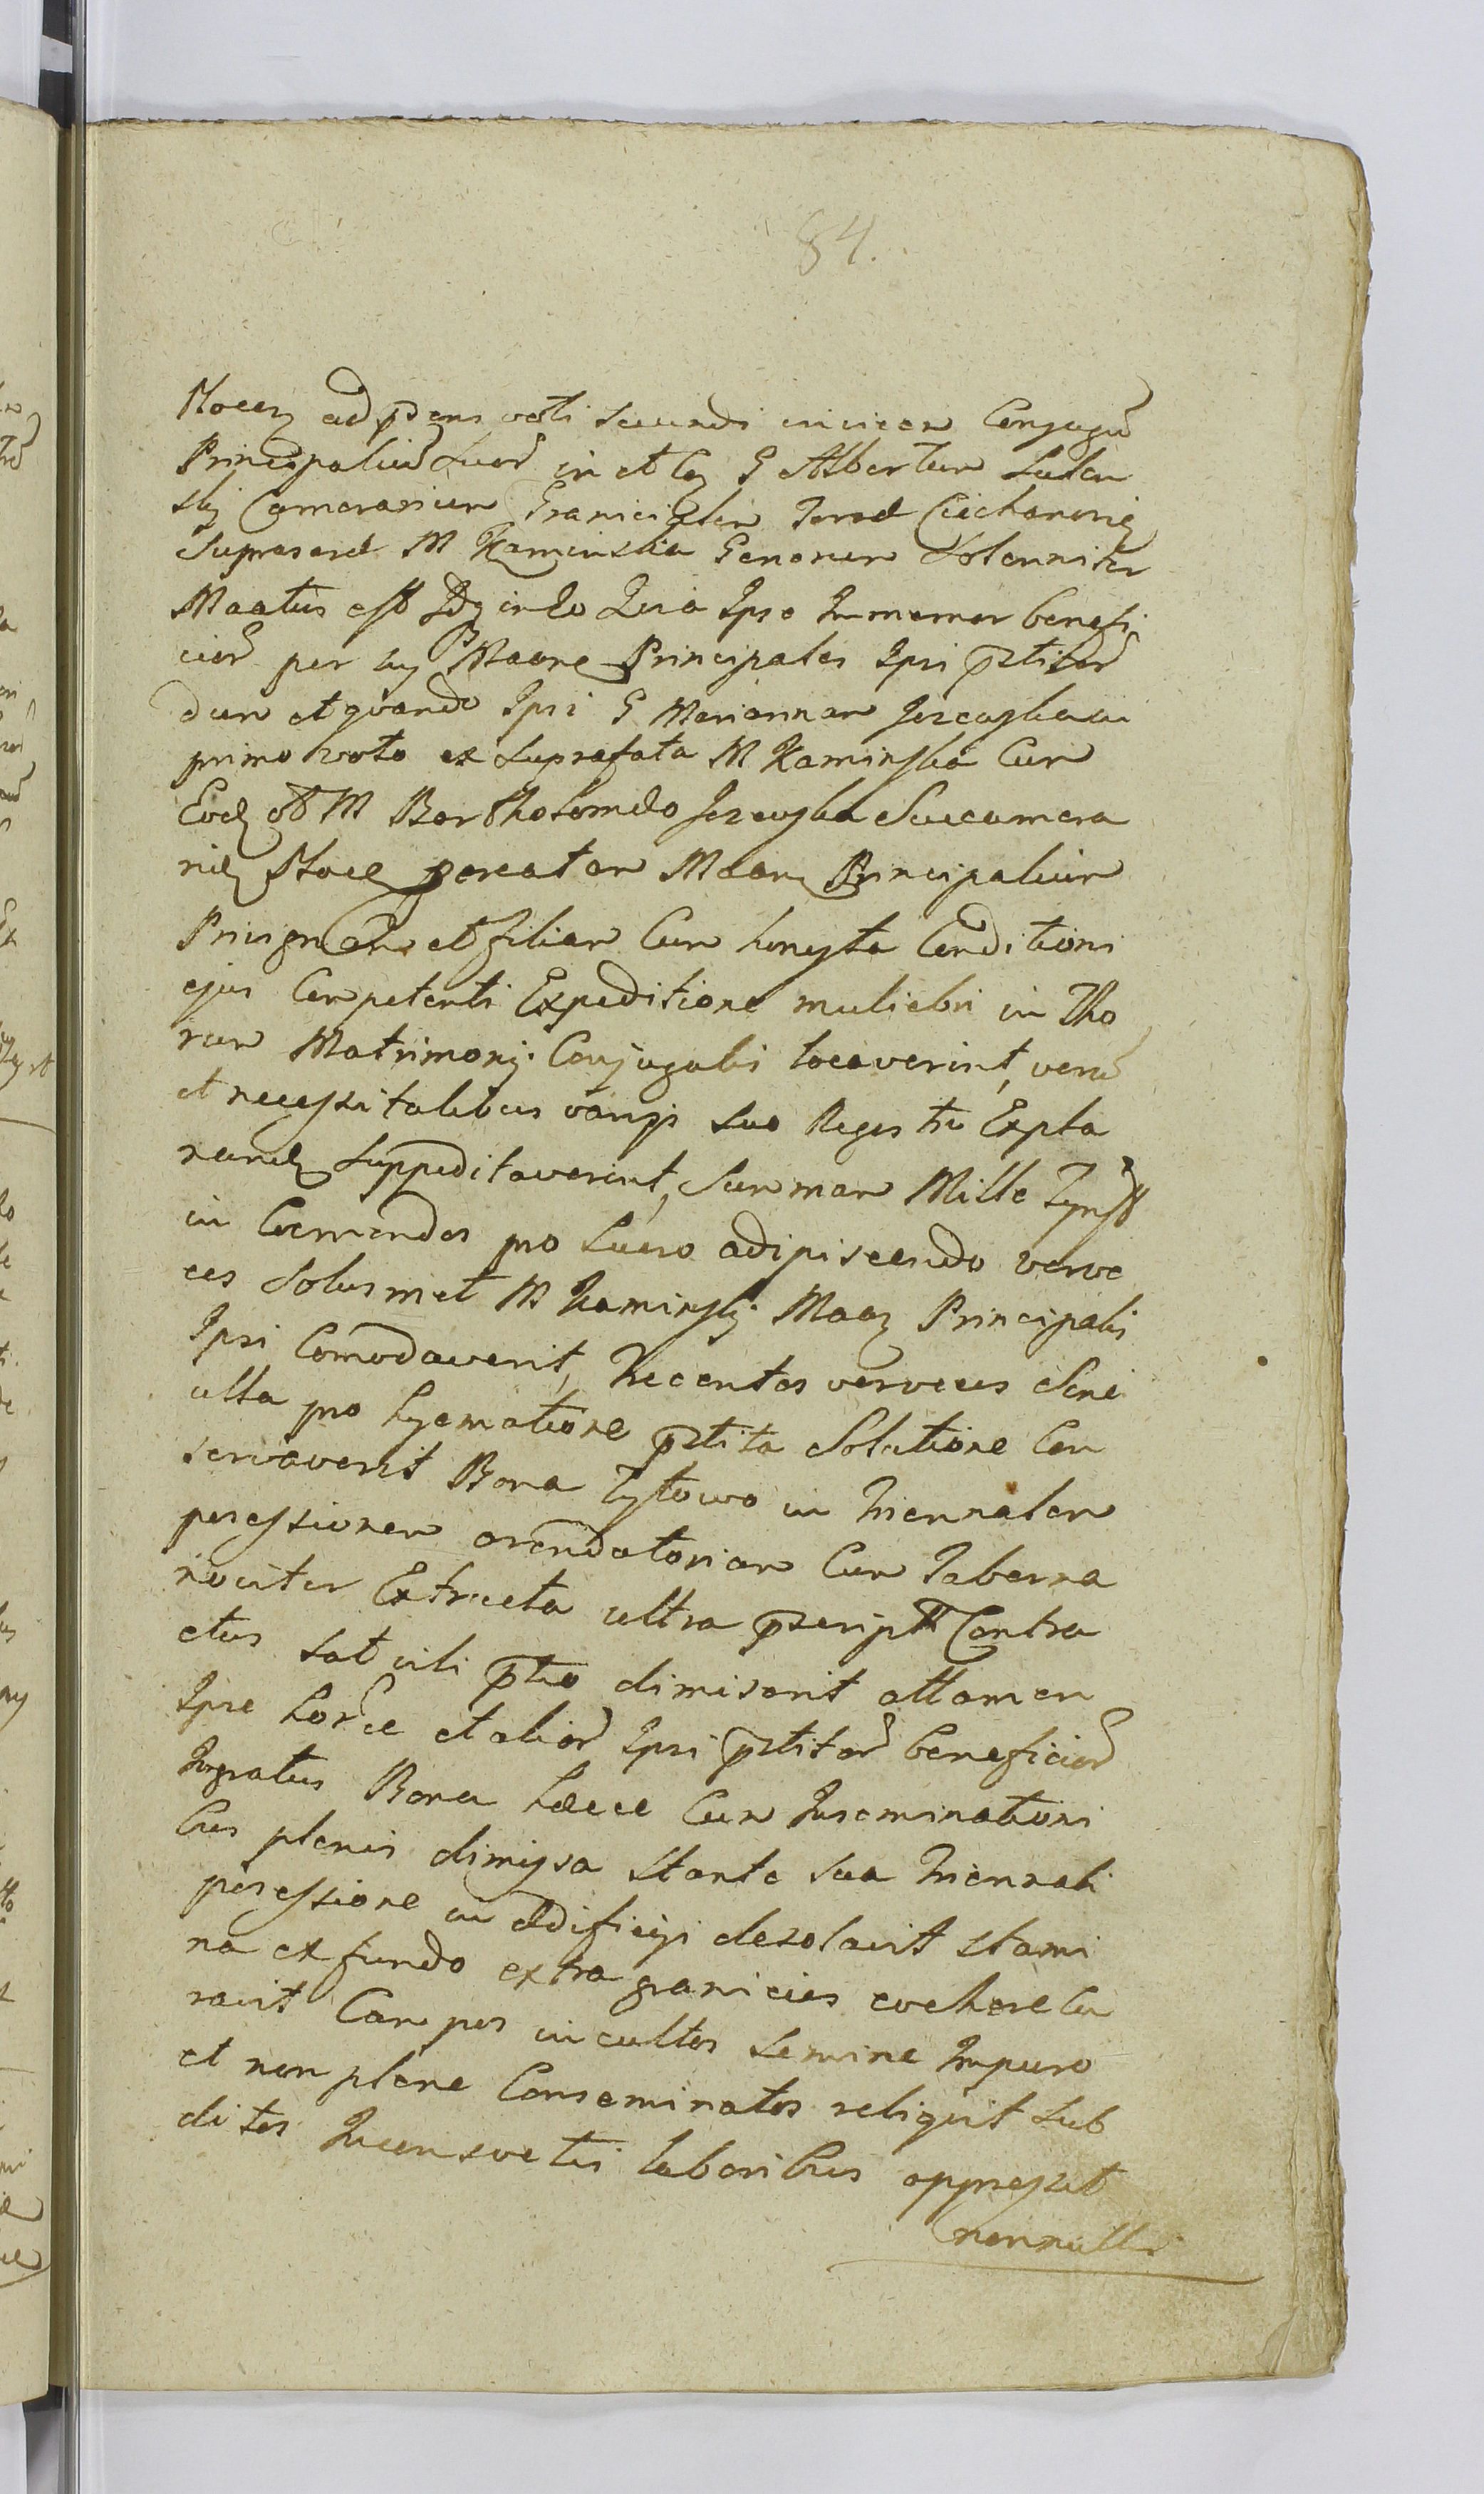 84.
Plocen ad pns voti secundi invicem Conjugū
Principaliū suor in et Coz G Albertum Luten
skj Camerarium Granicialem Terrae Ciechanovien
Supraserae M Kaminskia Generum Solenniter
Maatus est Idq in eo Quia Ipse Immemor benefi
cior per suos Maare Principales Ipsi pstitor
dum et quando Ipsi G Mariannam Jezewskiam
primo voto ex suprafata M Kaminska Cum
Eod ol M Bartholomeo Jezewski Succamera
rid Ploce procreatam Maan Principalium
Privignam et filiam Cum honesta Conditioni
ejus Competenti Expeditione muliebri in Tho
rum Matrimonij Conjugalis locaverint, verū
et necessitatibus varijs suo Regestro Expla
nand suppeditaverint, Summam Mille Tynff
in Coemendos pro lucro adipiscendo verve
ces Solusmet M Kaminskj Maan Principalis
Ipsi Comodaverit, Trecentos verveces Sine
ulla pro hyematione pstita Solutione Con
servaverit Bona Zytowo in Triennalem
possessionem arendatoriam Cum Taberna
noviter Extructa ultra pscript Contra
ctus sat vili ptio dimiserit attamen
Ipse horce et alior Ipsi pstitor beneficior
Ingratus Bona haece Cum Inseminationi
bus plenis dimissa stante sua Triennali
possessione in ædificijs desolavit stami
na ex fundo extra granicies evehere Cu
ravit Campos incultos semine Impuro
et non plene Conseminatos reliquit sub
ditos Inconsvetis laboribus oppressit
nonnulli